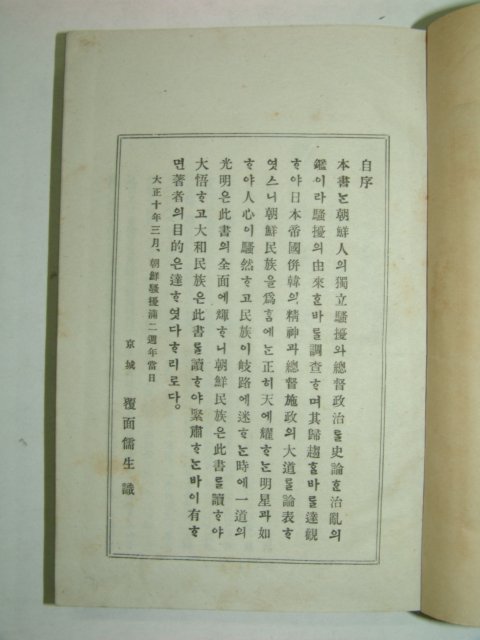 自序
本書ᄂᆞᆫ朝鮮人의獨立騷擾와總督政治ᄅᆞᆯ史論ᄒᆞᆫ治亂의
鑑이라騷擾의由來ᄒᆞᆫ바ᄅᆞᆯ調查ᄒᆞ며其歸趨ᄒᆞᆯ바ᄅᆞᆯ達觀
ᄒᆞ야日本帝國併韓의精神과總督施政의大道ᄅᆞᆯ論表ᄒᆞ
엿스니朝鮮民族을爲ᄒᆞᆷ에ᄂᆞᆫ正히天에耀ᄒᆞᄂᆞᆫ明星과如
ᄒᆞ야人心이騷然ᄒᆞ고民族이岐路에迷ᄒᆞᄂᆞᆫ時에一道의
光明은此書의全面에輝ᄒᆞ니朝鮮民族은此書ᄅᆞᆯ讀ᄒᆞ야
大悟ᄒᆞ고大和民族은此書ᄅᆞᆯ讀ᄒᆞ야緊肅ᄒᆞᄂᆞᆫ바이有ᄒᆞ
면著者의目的은達ᄒᆞ엿다ᄒᆞ리로다。
大正十年三月、朝鮮騷擾滿二週年當日
京城 覆面儒生識